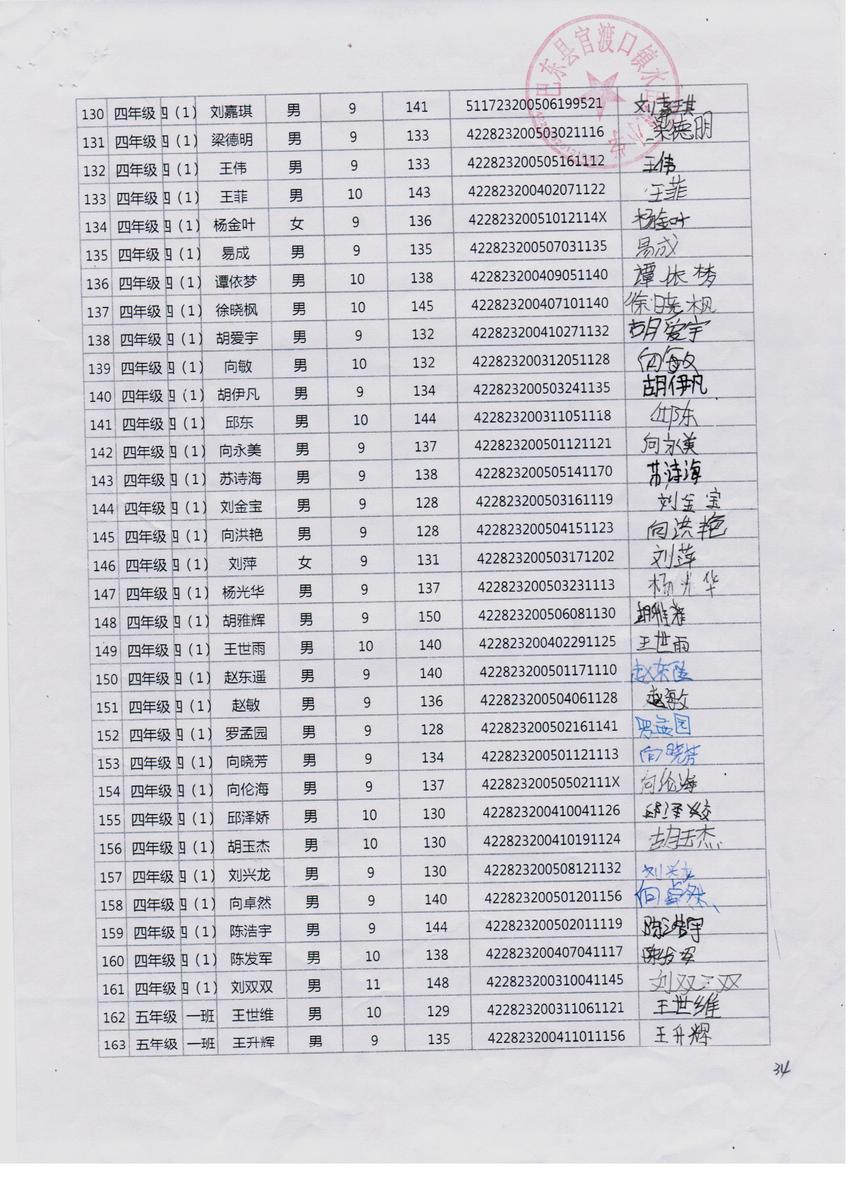 巴东县官渡口镇水
130 四年级 四（1） 刘嘉琪 男 9 141 511723200506199521 刘嘉琪
131 四年级 四（1） 梁德明 男 9 133 422823200503021116 梁德明
132 四年级 四（1） 王伟 男 9 133 422823200505161112 王伟
133 四年级 四（1） 王菲 男 10 143 422823200402071122 王菲
134 四年级 四（1） 杨金叶 女 9 136 42282320051012114X 杨金叶
135 四年级 四（1） 易成 男 9 135 422823200507031135 易成
136 四年级 四（1） 谭依梦 男 10 138 422823200409051140 谭依梦
137 四年级 四（1） 徐晓枫 男 10 145 422823200407101140 徐晓枫
138 四年级 四（1） 胡爱宇 男 9 132 422823200410271132 胡爱宇
139 四年级 四（1） 向敏 男 10 132 422823200312051128 向敏
140 四年级 四（1） 胡伊凡 男 9 134 422823200503241135 胡伊凡
141 四年级 四（1） 邱东 男 10 144 422823200311051118 邱东
142 四年级 四（1） 向永美 男 9 137 422823200501121121 向永美
143 四年级 四（1） 苏诗海 男 9 138 422823200505141170 苏诗海
144 四年级 四（1） 刘金宝 男 9 128 422823200503161119 刘金宝
145 四年级 四（1） 向洪艳 男 9 128 422823200504151123 向洪艳
146 四年级 四（1） 刘萍 女 9 131 422823200503171202 刘萍
147 四年级 四（1） 杨光华 男 9 137 422823200503231113 杨光华
148 四年级 四（1） 胡雅辉 男 9 150 422823200506081130
149 四年级 四（1） 王世雨 男 10 140 422823200402291125 王世雨
150 四年级 四（1） 赵东遥 男 9 140 422823200501171110 赵东遥
151 四年级 四（1） 赵敏 男 9 136 422823200504061128 赵敏
152 四年级 四（1） 罗孟园 男 9 128 422823200502161141 罗孟园
153 四年级 四（1） 向晓芳 男 9 134 422823200501121113 向晓芳
154 四年级 四（1） 向伦海 男 9 137 42282320050502111X 向伦海
155 四年级 四（1） 邱泽娇 男 10 130 422823200410041126 邱泽娇
156 四年级 四（1） 胡玉杰 男 10 130 422823200410191124 胡玉杰
157 四年级 四（1） 刘兴龙 男 9 130 422823200508121132 刘兴龙
158 四年级 四（1） 向卓然 男 9 140 422823200501201156 向卓然
159 四年级 四（1） 陈浩宇 男 9 144 422823200502011119 陈浩宇
160 四年级 四（1） 陈发军 男 10 138 422823200407041117 陈发军
161 四年级 四（1） 刘双双 男 11 148 422823200310041145 刘双双
162 五年级 一班 王世维 男 10 129 422823200311061121 王世维
163 五年级 一班 王升辉 男 9 135 422823200411011156 王升辉
34